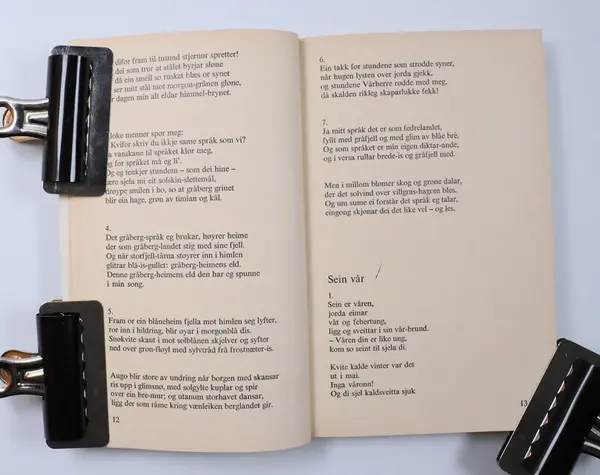 difor fram til tusund stjernor spretter!
dei som trur at stålet byrjar sløne
då ein smell so rusket blæs or synet
ser mitt stål mot morgon-grånen gløne,
dagen min alt eldar himmel-brynet.
loke menner spor meg:
Kvifor skriv du ikkje same språk som vi?
vanskane til språket klør meg,
for språket må eg li'.
Og eg tenkjer stundom – som dei hine –
sjela mi eit solskin-slettemål,
drøype smilen i ho, so at gråberg grinet
blir ein hage, grøn av timian og kål.
4.
Det gråberg-språk eg brukar, høyrer heime
der som gråberg-landet stig med sine fjell.
Og når storfjell-tårna støyrer inn i himlen
glitrar blå-is-gullet: gråberg-heimens eld.
Denne gråberg-heimens eld den har eg spunne
i min song.
5.
Fram or ein blåneheim fjella mot himlen seg lyfter,
ror inn i hildring, blir øyar i morgonblå dis.
Snøkvite skaut i mot solblånen skjelver og syfter
ned over grøn-fløyl med sylvtråd frå frostnæter-is.
Augo blir store av undring når borgen med skansar
ris upp i glimsnø, med solgylte kuplar og spir
over ein bre-mur; og utanum storhavet dansar,
ligg der som råme kring vænleiken berglandet gir.
12
6.
Ein takk for stundene som strødde syner,
når hugen lysten over jorda gjekk,
og stundene Vårherre rødde med meg,
då skalden rikleg skaparlukke fekk!
7.
Ja mitt språk det er som fedrelandet,
fyllt med gråfjell og med glim av blåe brè.
Og som språket er min eigen diktar-ande,
og i versa rullar brede-is og gråfjell med.
Men i millom blømer skog og grøne dalar,
der det solvind over villgras-hagen blæs.
Og um sume ei forstår det språk eg talar,
eingong skjønar dei det like vel – og les.
Sein vår
1.
Sein er våren,
jorda eimar
våt og febertung,
ligg og sveittar i sin vår-brund.
– Våren din er like ung,
kom so seint til sjela di.
Kvite kalde vinter var det
ut i mai.
Inga våronn!
Og di sjel kaldsveitta sjuk
13